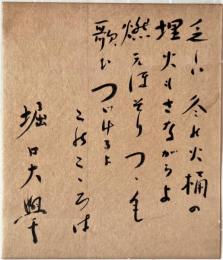 乏しい 冬の火桶の
埋火もさながらよ
燃えほそりつゝも
歌ひつゞけるよ
このこゝろは
堀口大學